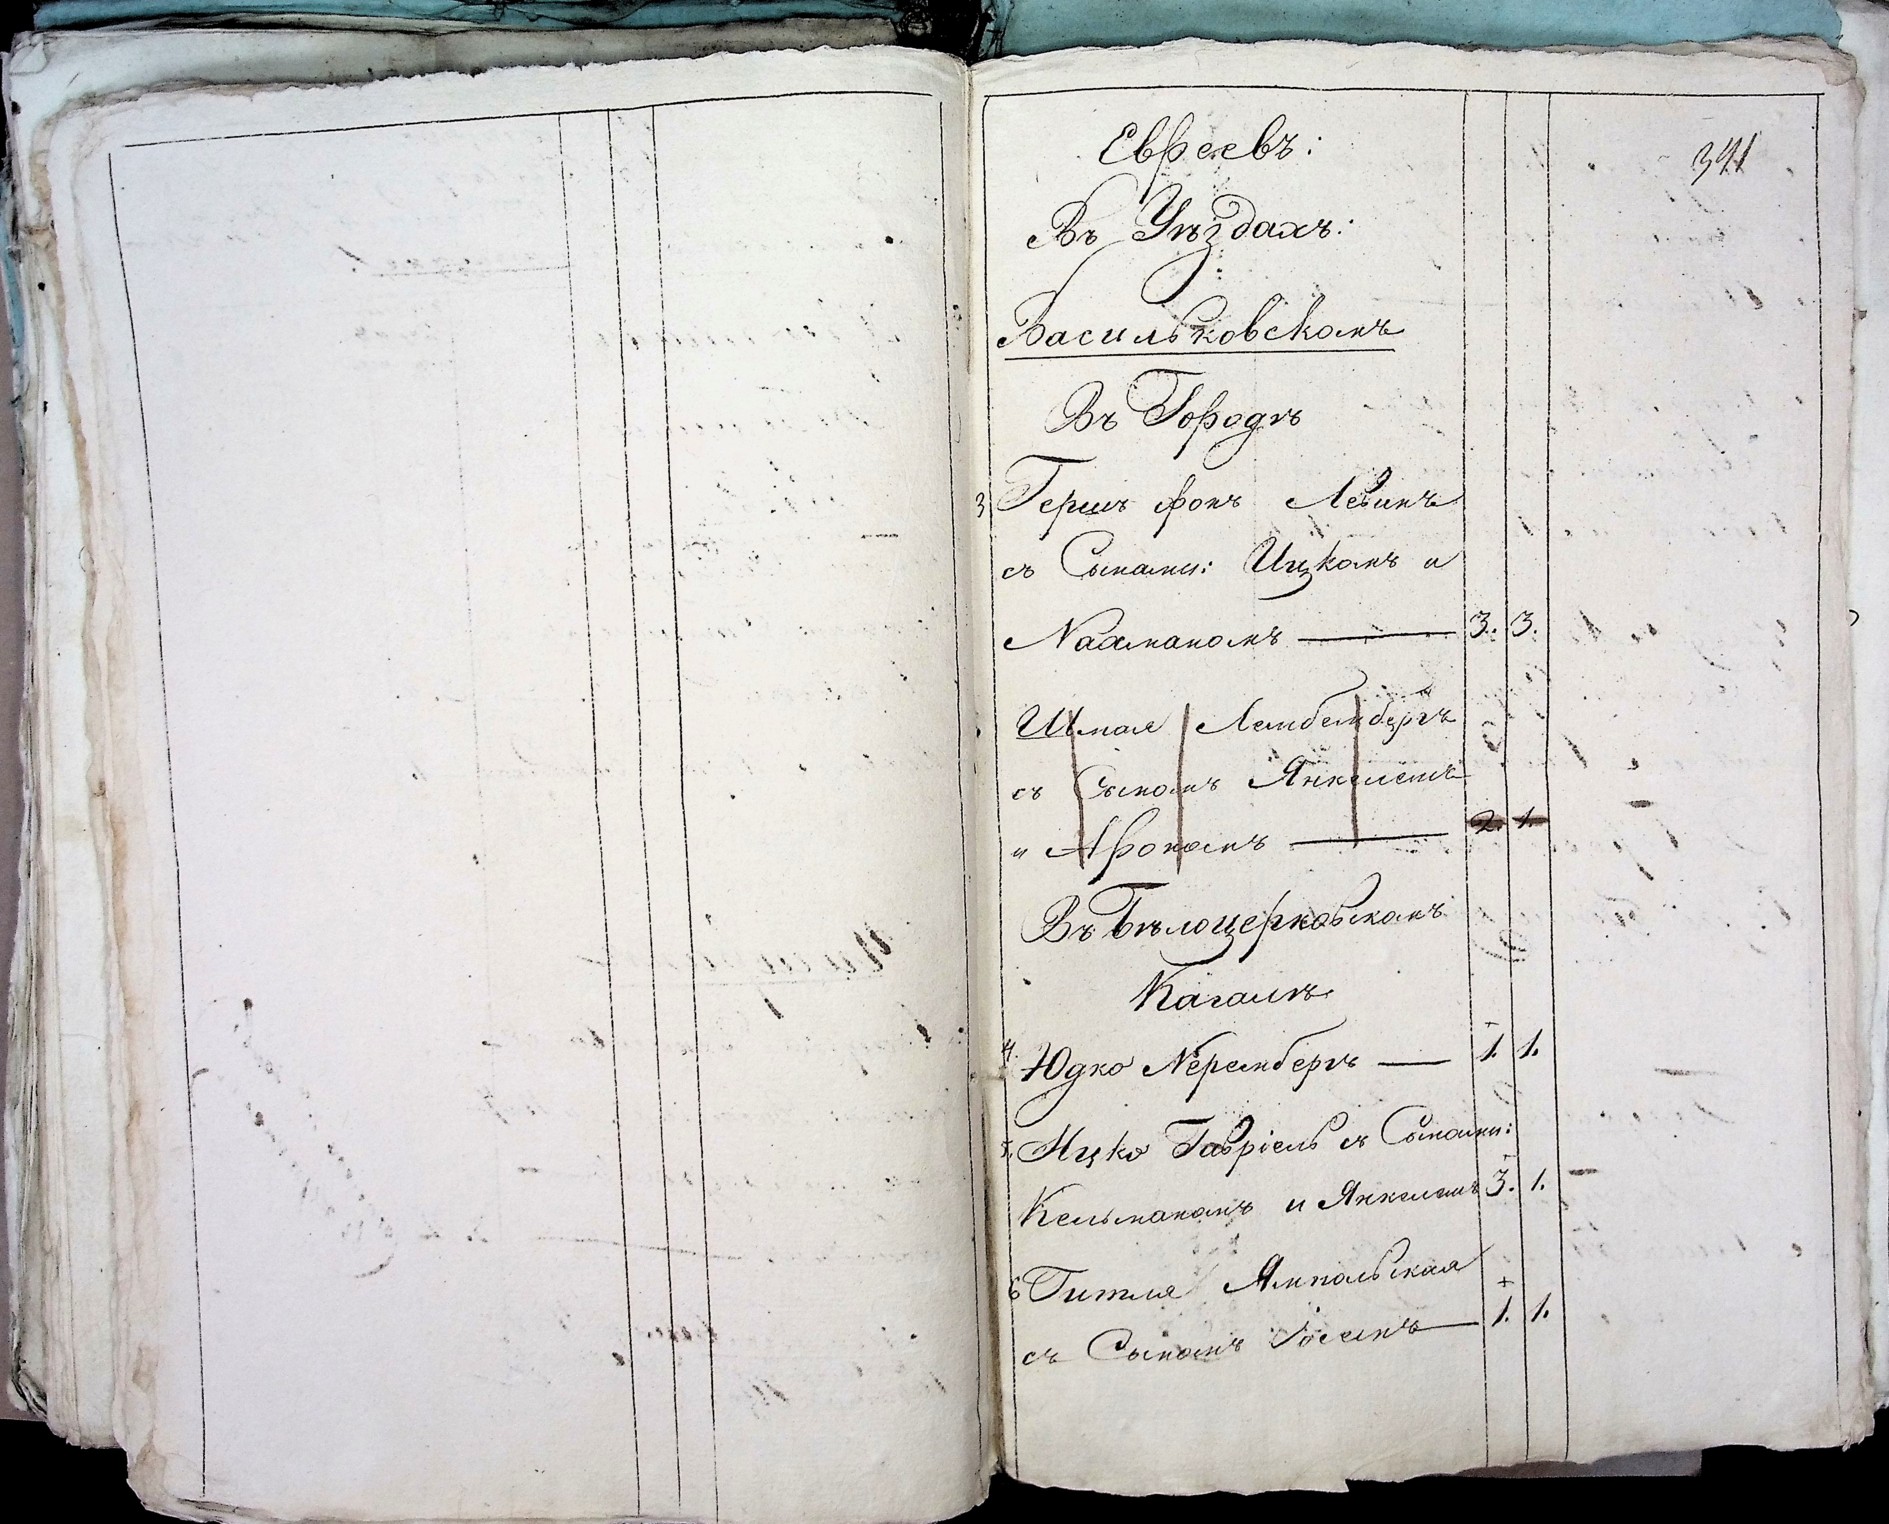 341
Евреевъ:
Въ Уѣздахъ:
Васильковскомъ
Въ Городѣ
3 Гершъ фонъ Левинъ
съ Сынами: Ицкомъ и
Нахманомъ — 3. 3.
Шмая Лембембергъ
съ Сыномъ Янкелемъ
и Арономъ — 2. 1.
Въ Бѣлоцерковскомъ
Кагалѣ
4. Юдко Нерембергъ — 1. 1.
5. Ицко Гавріель съ Сынами:
Кельманомъ и Янкелемъ 3. 1.
6 Гитля Ямпольская +
съ Сыномъ Іосемъ — 1. 1.